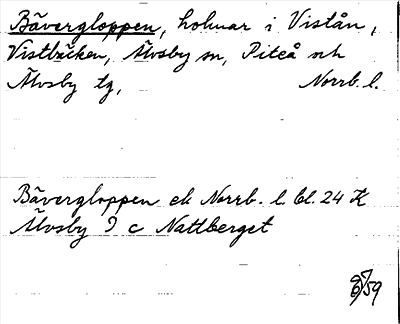 Bävergloppen, holmar i Vistån,
Vistbäcken, Älvsby sn, Piteå och
Älvsby tg, Norrb. l.
Bävergloppen ek Norrb. l. bl. 24 K
Älvsby 9 c Nattberget
/59